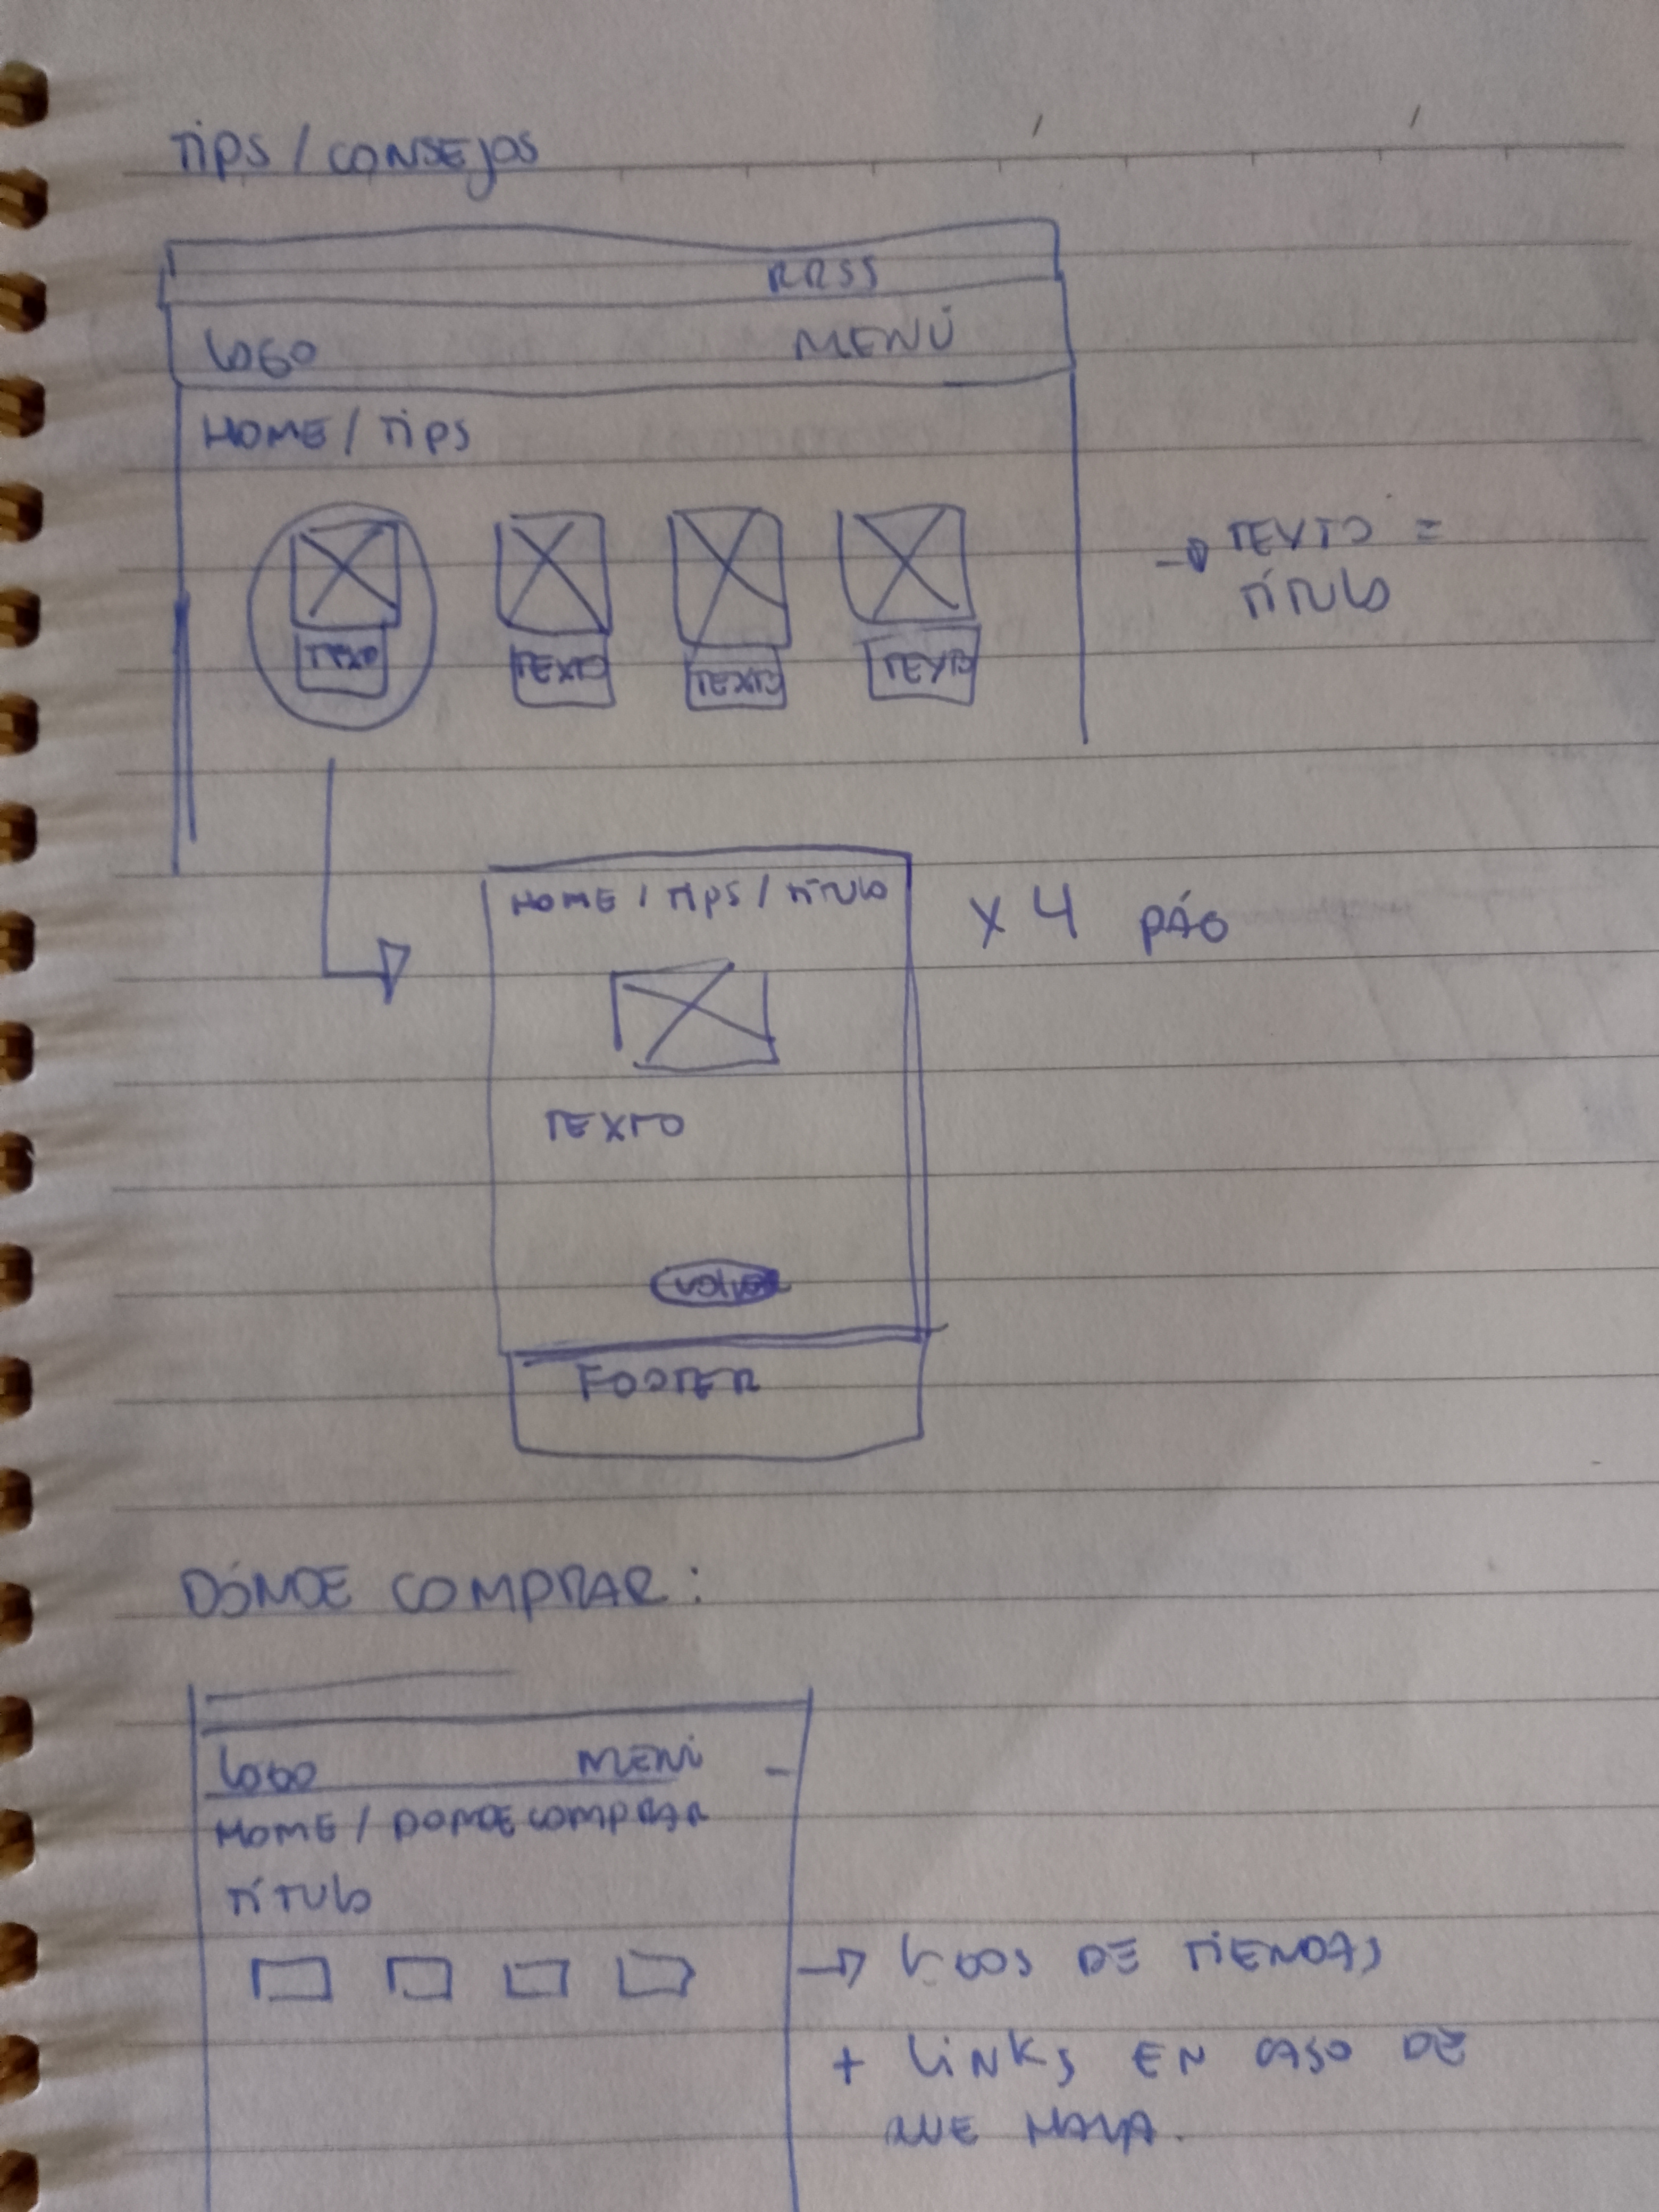 TIPS / CONSEJOS
RRSS
LOGO MENÚ
HOME / TIPS
TEXTO TEXTO TEXTO TEXTO
→ TEXTO =
TÍTULO
HOME / TIPS / TÍTULO
X 4 PÁG
TEXTO
VOLVER
FOOTER
DÓNDE COMPRAR :
LOGO MENÚ
HOME / DONDE COMPRAR
TÍTULO
→ LOGOS DE TIENDAS
+ LINKS EN CASO DE
QUE HAYA.